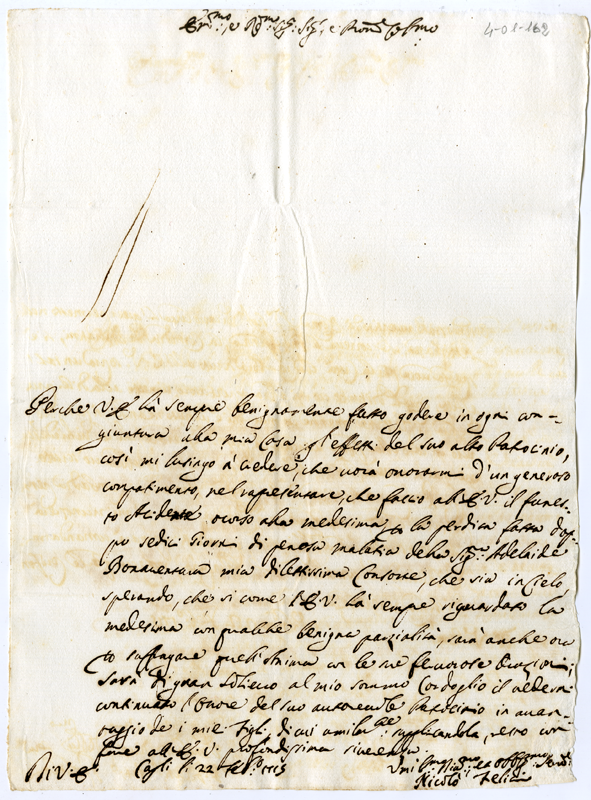 Em:mo e R:mo Sig:r Sig:r e Pron Col:mo
4-01-162
Perche V.E. hà sempre benignamente fatto godere in ogni con-
giuntura alla mia Casa gl'effetti del suo alto Patrocinio,
così mi lusingo à credere, che vorà onorarmi d'un generoso
compatimento, nel rapresentare, che faccio all'E.V. il funes-
to Acidente ocorso alla medesima la perdita fatta dop-
po sedici Giorni di penosa malatia della Sig:ra Adelaide
Bonaventura mia dilettissima Consorte, che sia in Cielo,
sperando, che si come l'E.V. hà sempre riguardato la
medesima con qualche benigna parzialità, sarà anche ora
suffragare quell'Anima con le sue fervorose
Sarà di gran Solievo al mio sommo Cordoglio il vedermi
continuato l'Onore del suo autorevole Patrocinio in avan-
taggio de i miei Figli, di cui umilm:te supplicandola, resto con
fare all'E.V. profondissima riverenza
Di V.E. Cagli li 22
Nicolò Felici